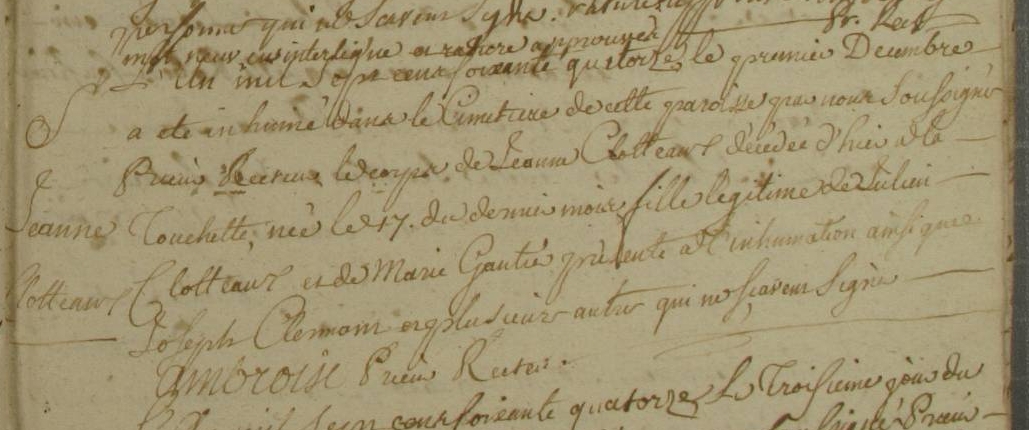 personne qui ne scavent signe.
mot neuf en interligne et rature approuvés
S L'an mil sept cent soixante quatorze le premier Decembre
a eté inhumé dans le Cimetiere de cette paroisse par nous soussigné
Prieur Recteur le corps de Jeanne Clotteaux décédée d'hier a la
Jeanne Touchette, née le 17. du dernier mois fille legitime de Julien
Clotteaux Clotteaux et de Marie Gautié présente a l'inhumation ainsi que
Joseph Clermont et plusieurs autres qui ne scavent signé
ambroise Prieur Recteur.
sept cent soixante quatorze Le Troisieme jour du
Prieur